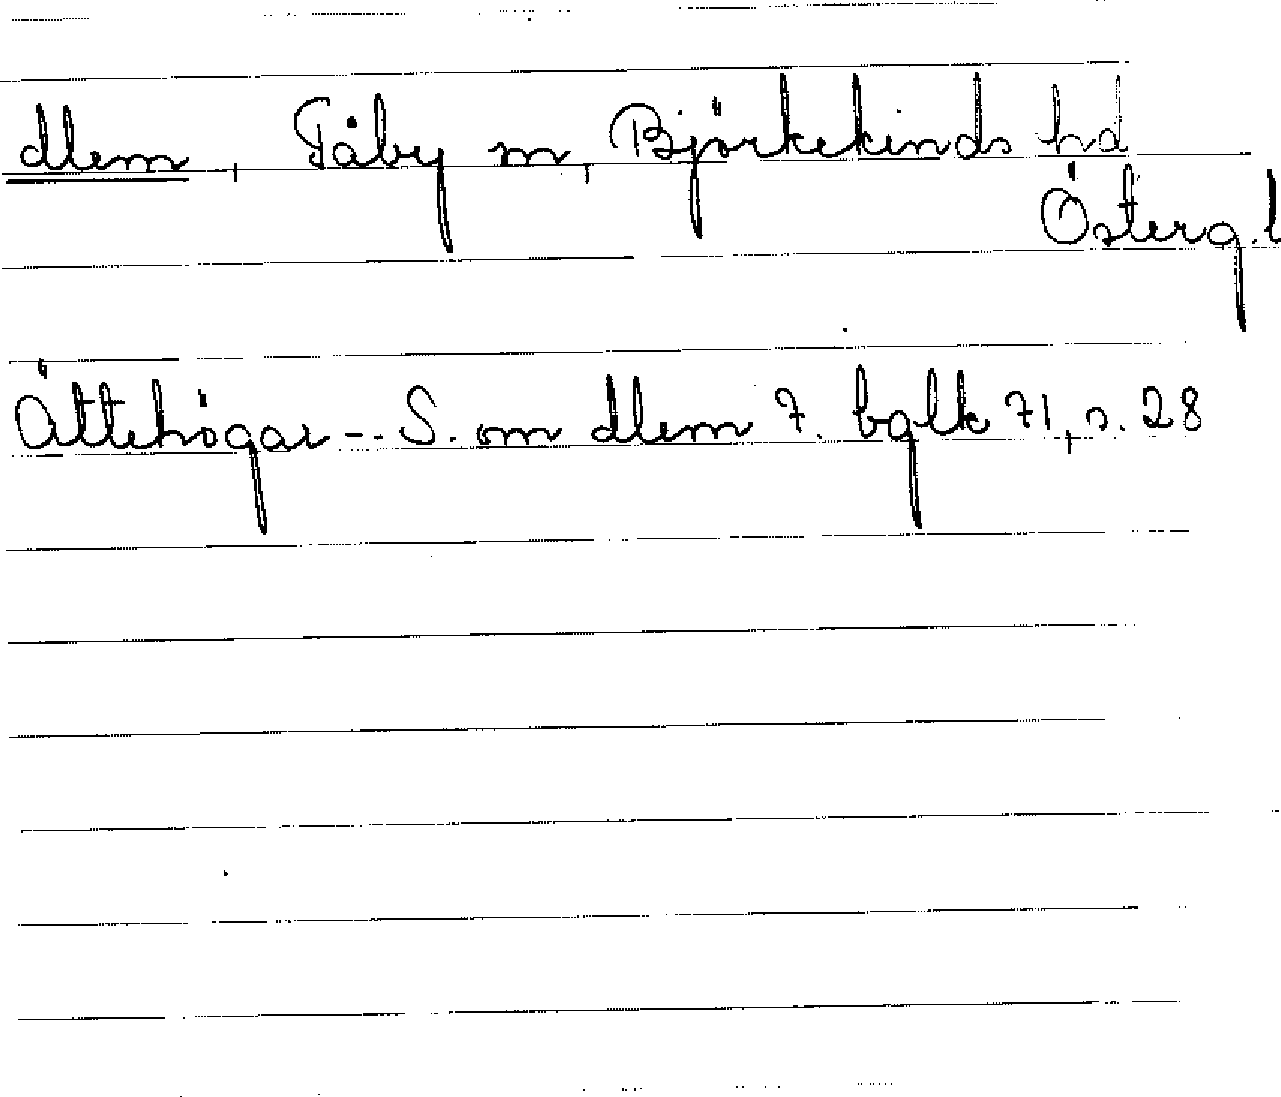 dlem, Tåby sn, Björkekinds hd
Österg. l
Ättehögar -- S. om dlem 7. bglk 71, s. 28